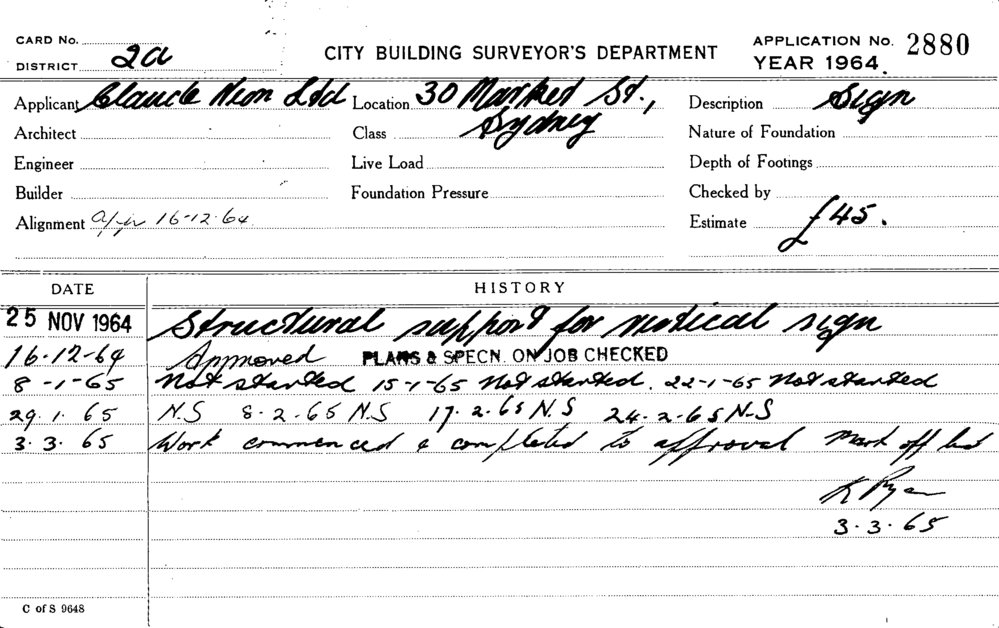 CARD No.
DISTRICT 2a
CITY BUILDING SURVEYOR'S DEPARTMENT
APPLICATION No. 2880
YEAR 1964.
Applicant Claude Neon Ltd Location 30 Market St., Description Sign
Architect Class Sydney Nature of Foundation
Engineer Live Load Depth of Footings
Builder Foundation Pressure Checked by
Alignment 16-12-64 Estimate £45.
DATE HISTORY
25 NOV 1964 Structural support for vertical sign
16-12-64 Approved PLANS & SPECN. ON JOB CHECKED
8-1-65 Not started 15-1-65 Not started. 22-1-65 Not started
29.1.65 N.S 8.2.65 N.S 17.2.65 N.S 24.2.65 N.S
3.3.65 Work commenced & completed to approval Mark off
K Ryan
3.3.65
C of S 9648